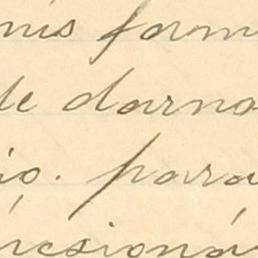 nis form
de darno
io. para
resioná